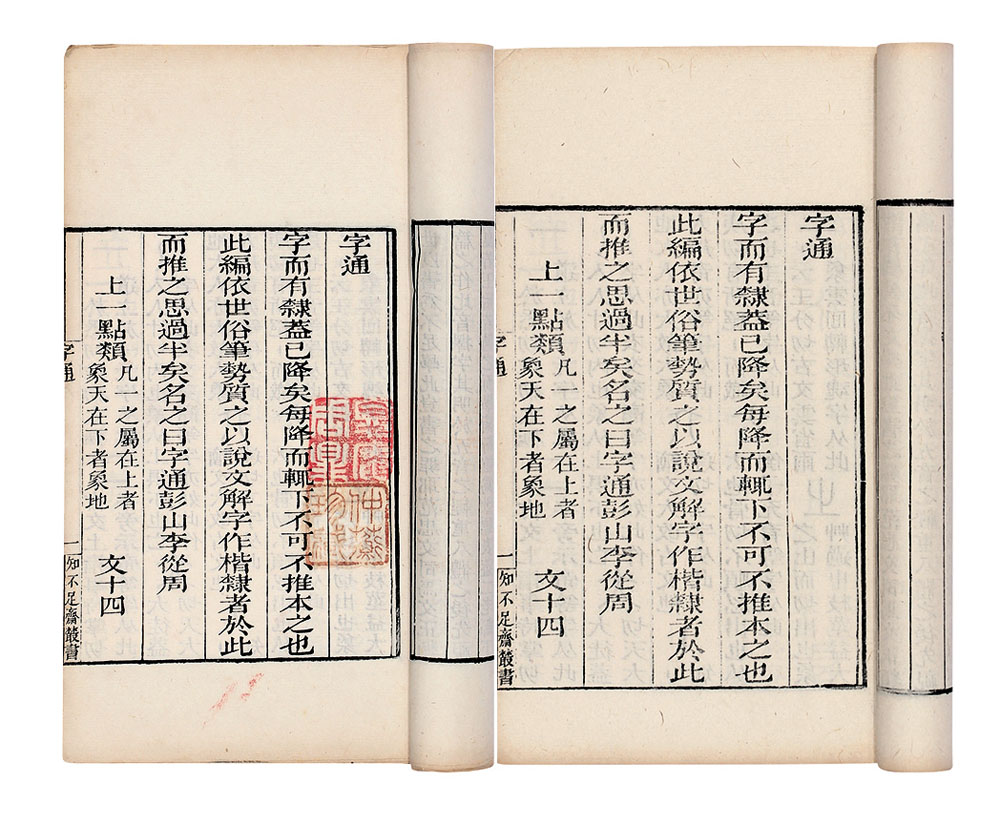 字通
字而有隸葢已降矣每降而輒下不可不推本之也
此編依世俗筆勢質之以說文解字作楷隸者於此
而推之思過半矣名之曰字通彭山李從周
上一點類
凡一之屬在上者
象天在下者象地
文十四
字通
一
知不足齋叢書
字通
字而有隸葢已降矣每降而輒下不可不推本之也
此編依世俗筆勢質之以說文解字作楷隸者於此
而推之思過半矣名之曰字通彭山李從周
上一點類
凡一之屬在上者
象天在下者象地
文十四
字通
一
知不足齋叢書